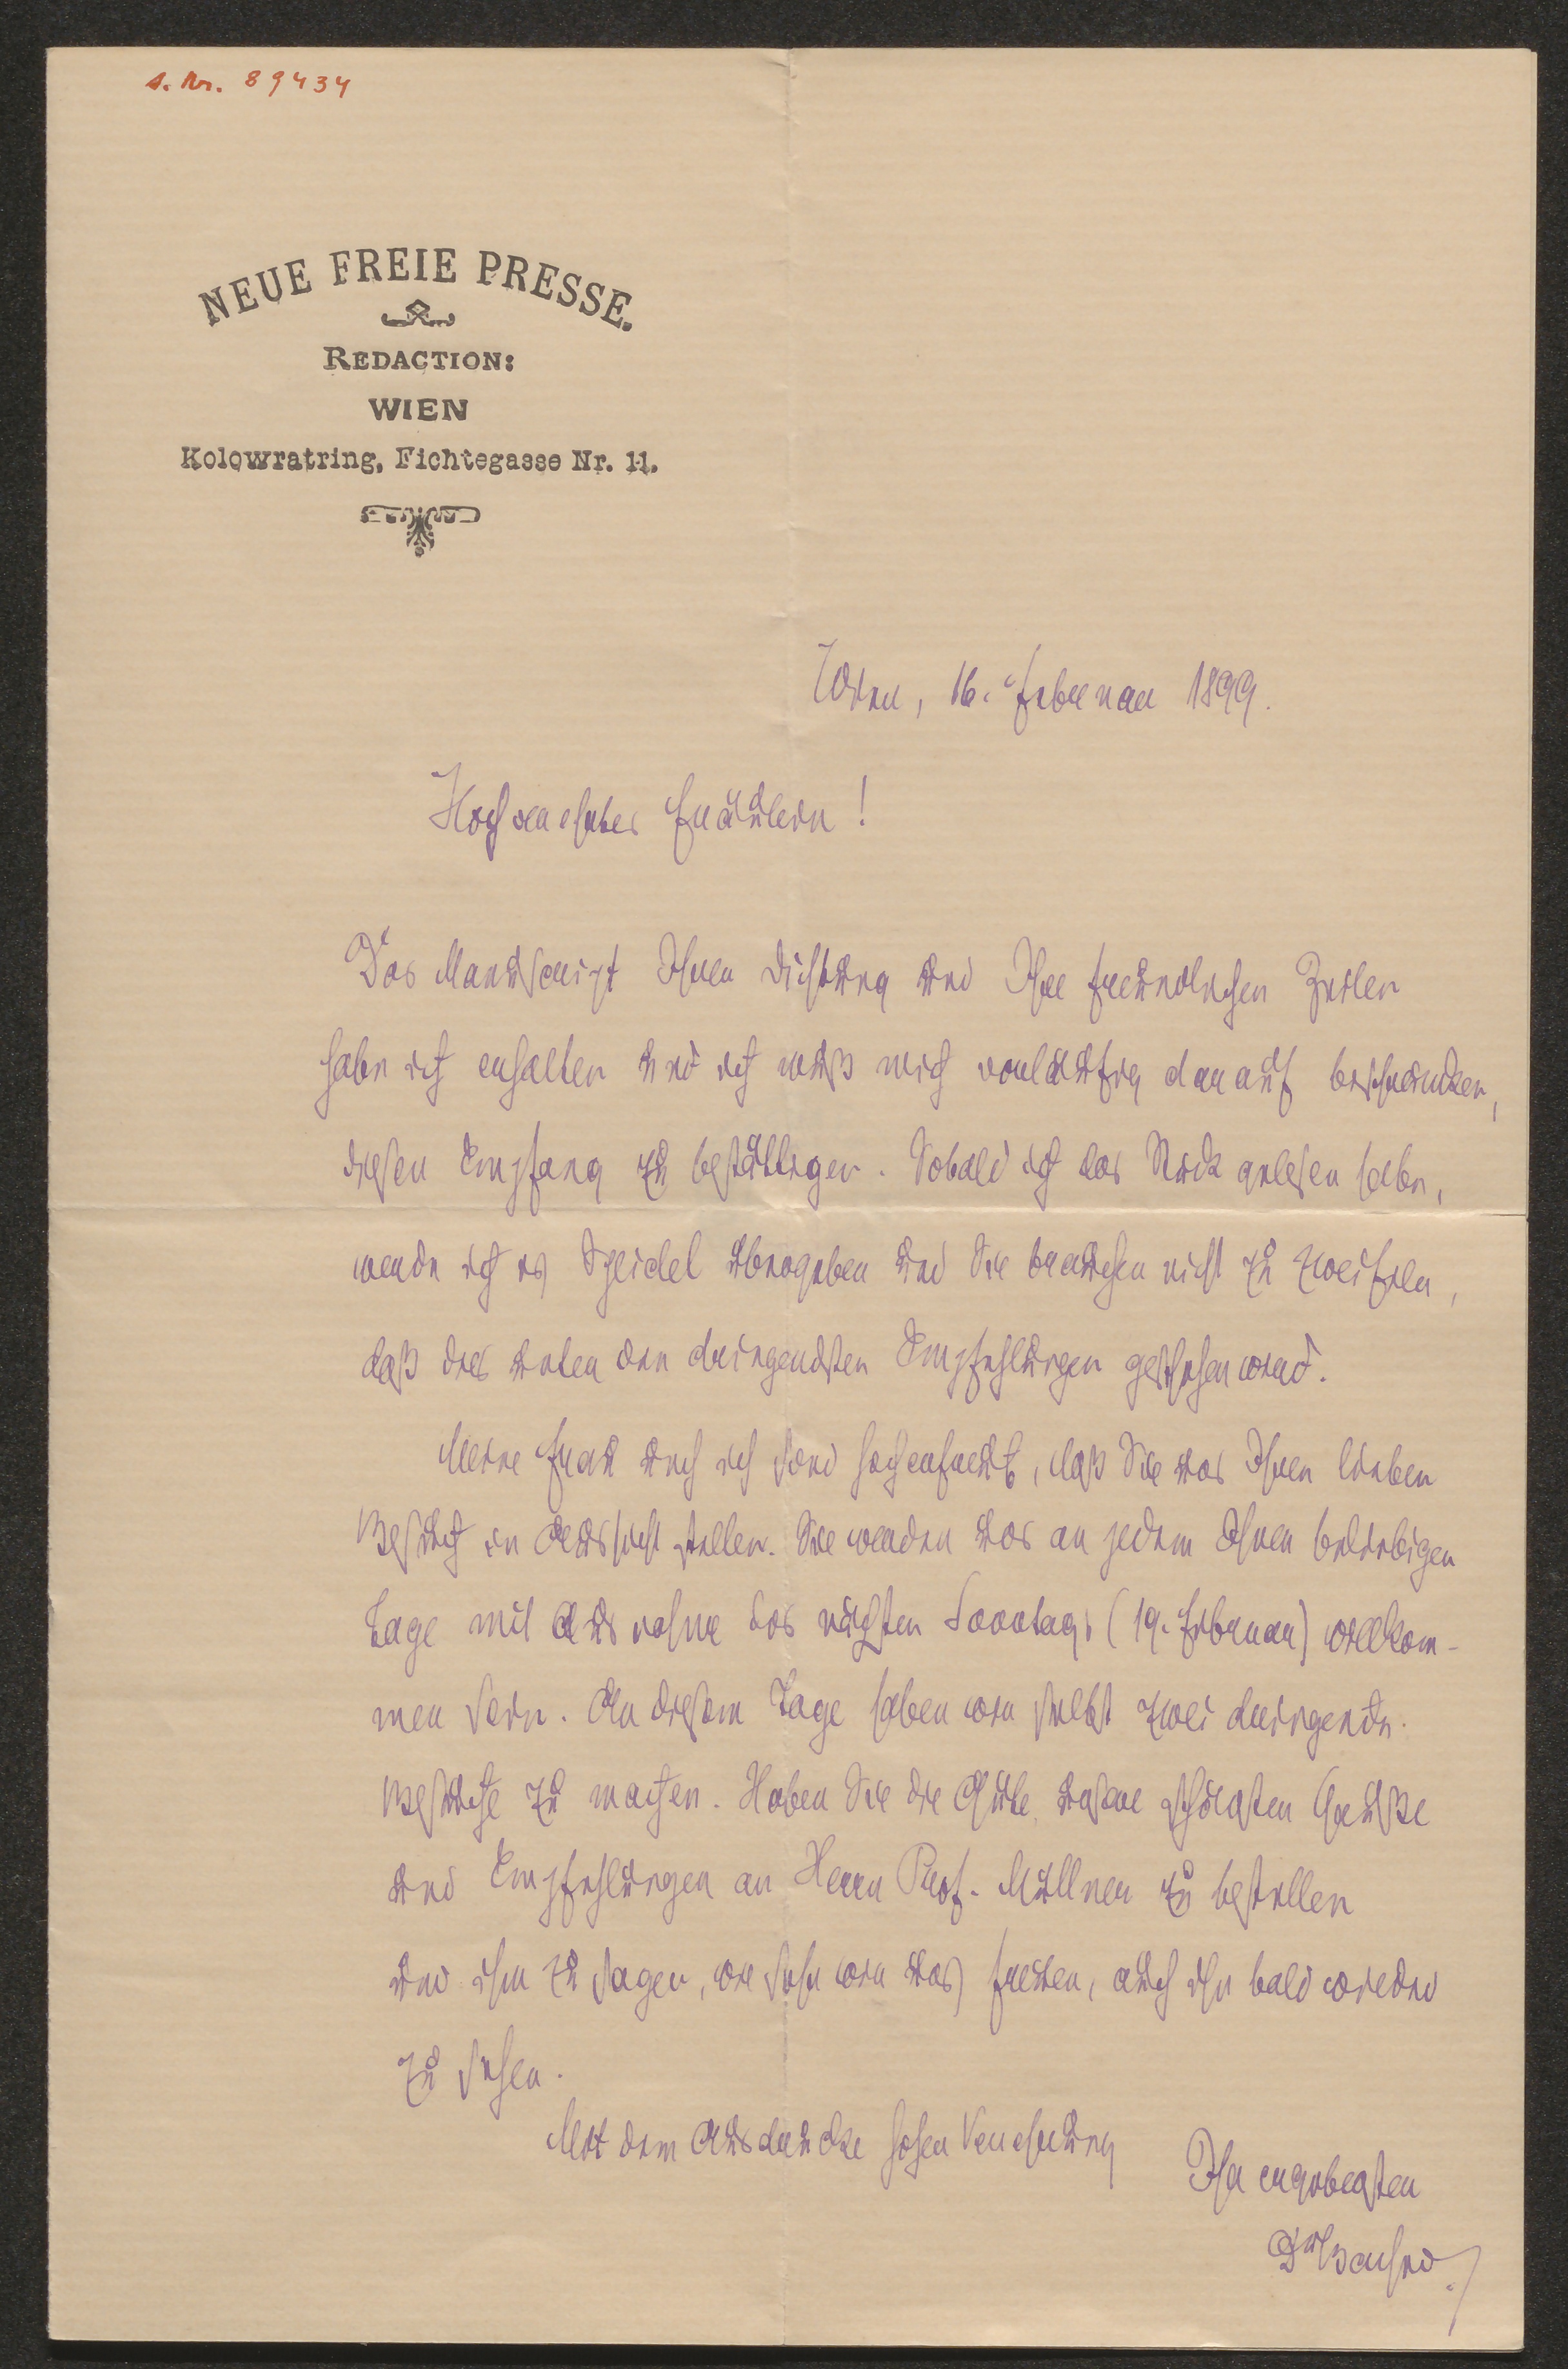 s. Nr. 89434
NEUE FREIE PRESSE.
REDACTION:
WIEN
Kolowratring, Fichtegasse Nr. 11.
Wien, 16. Februar 1899.
Hochverehrtes Fräulein!
Das Manuscript Ihrer Dichtung und Ihre freundlichen Zeilen
habe ich erhalten und ich muß mich vorläufig darauf beschränken,
diesen Empfang zu bestättigen. Sobald ich das Stück gelesen habe,
werde ich es Speidel übergeben und Sie brauchen nicht zu zweifeln,
daß dies unter den dringendsten Empfehlungen geschehen wird.
Meine Frau und ich sind hocherfreut, daß Sie uns Ihren lieben
Besuch in Aussicht stellen. Sie werden uns an jedem Ihnen beliebigen
Tage mit Ausnahme des nächsten Sonntags (19. Februar) willkom-
men sein. An diesem Tage haben wir selbst zwei dringende
Besuche zu machen. Haben Sie die Güte unsere schönsten Grüße
und Empfehlungen an Herrn Prof. Müllner zu bestellen
und ihm zu sagen, wie sehr wir uns freuen, auch ihn bald wieder
zu sehen.
Mit dem Ausdrucke hoher Verehrung
Ihr ergebenster
Dr